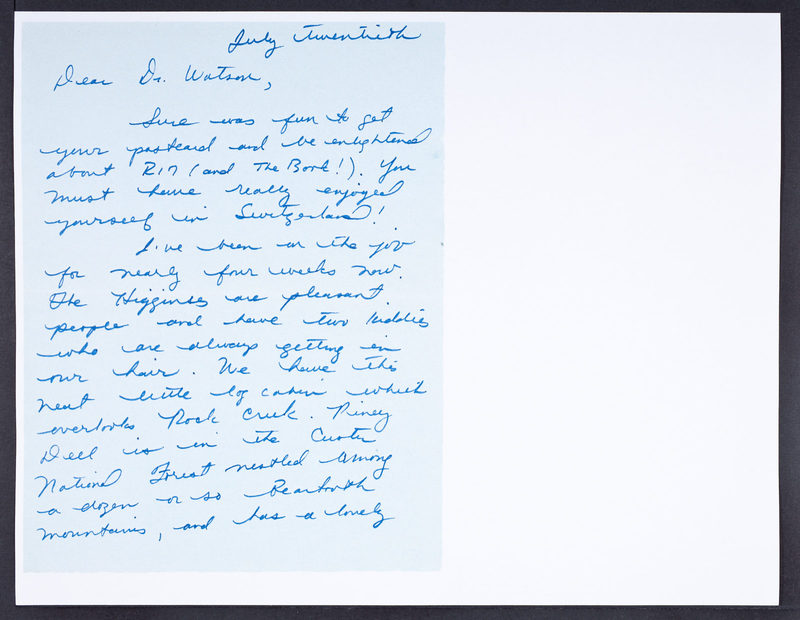 July twentieth
Dear Dr. Watson,
Sure was fun to get
your postcard and be enlightened
about (and The Book!). You
must have really enjoyed
yourself in Switzerland!
I've been on the job
for nearly four weeks now.
The Higginses are pleasant
people and have two kiddies
who are always getting in
our hair. We have this
neat little log cabin which
overlooks Rock Creek. Piney
Dell is in the Custer
National Forest nestled among
a dozen or so Beartooth
mountains, and has a lovely